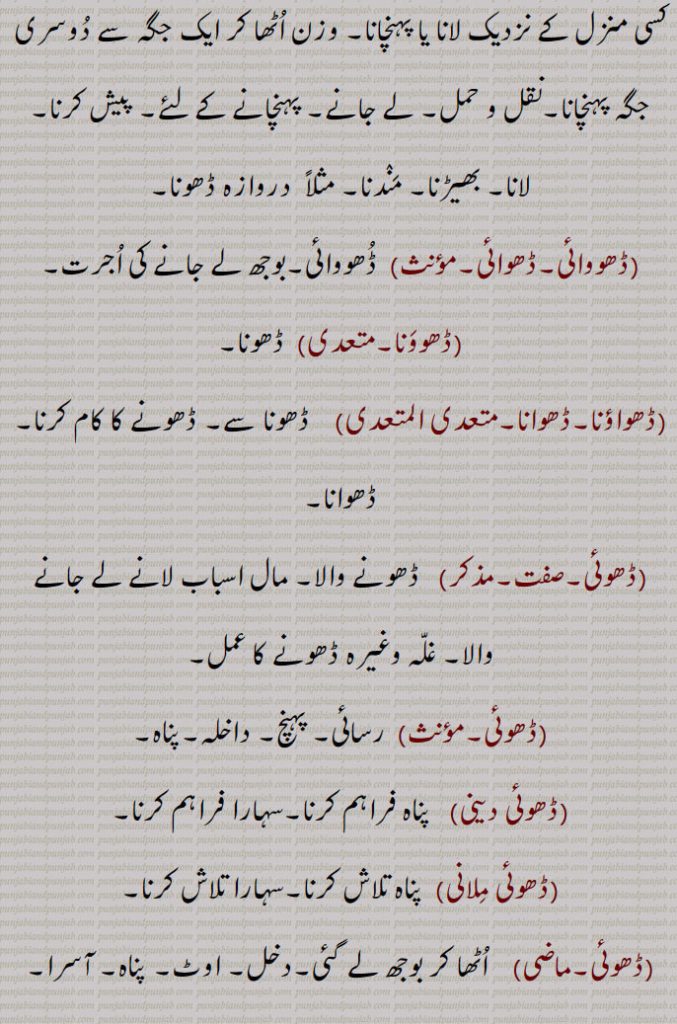 کسی منزل کے نزدیک لانا یا پہنچانا۔ وزن اُٹھا کر ایک جگہ سے دُوسری
جگہ پہنچانا۔نقل و حمل۔ لے جانے۔ پہنچانے کے لئے۔ پیش کرنا۔
لانا۔ بھیڑنا۔ مَنْدنا۔ مثلاً دروازہ ڈھونا۔
(ڈھووائی۔ڈھوائی۔مؤنث) ڈُھووائی۔بوجھ لے جانے کی اُجرت۔
(ڈھووَنا۔متعدی) ڈھونا۔
(ڈھواؤنا۔ڈھوانا۔متعدی المتعدی) ڈھونا سے۔ ڈھونے کا کام کرنا۔
ڈھوانا۔
(ڈھوئی۔صفت۔مذکر) ڈھونے والا۔ مال اسباب لانے لے جانے
والا۔ غلّہ وغیرہ ڈھونے کا عمل۔
(ڈھوئی۔مؤنث) رسائی۔ پہنچ۔ داخلہ۔پناہ۔
(ڈھوئی دینی) پناہ فراہم کرنا۔سہارا فراہم کرنا۔
(ڈھوئی مِلانی) پناہ تلاش کرنا۔سہارا تلاش کرنا۔
(ڈھوئی۔ماضی) اُٹھا کر بوجھ لے گئی۔دخل۔ اوٹ۔ پناہ۔ آسرا۔